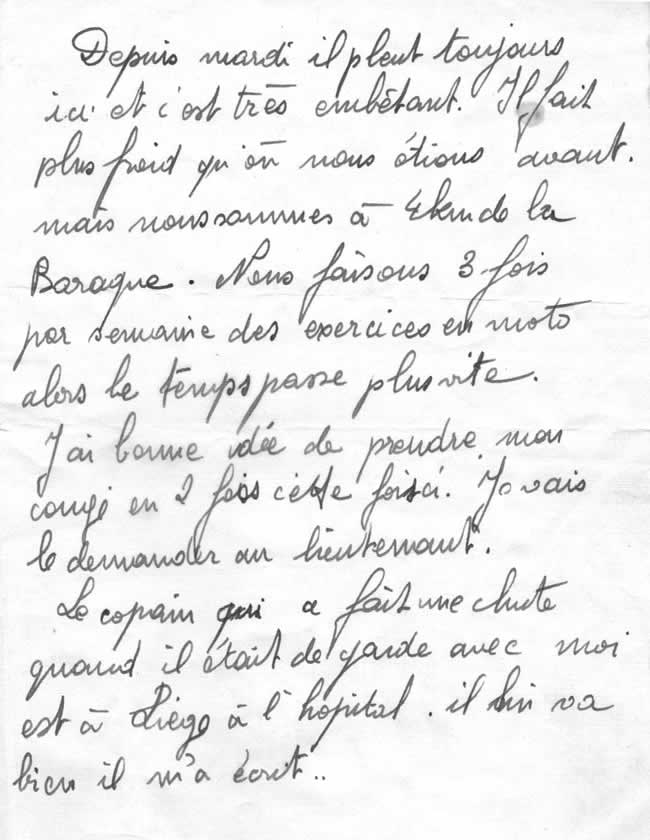 Depuis mardi il pleut toujours
ici et c'est très embêtant. Il fait
plus froid qu'où nous étions avant.
mais nous sommes à de la
Baraque. Nous faisons 3 fois
par semaine des exercices en moto
alors le temps passe plus vite.
J'ai bonne idée de prendre mon
congé en 2 fois cette fois ci. Je vais
le demander au lieutenant.
Le copain qui a fait une chute
quand il était de garde avec moi
est à Liège à l'hopital. il va
bien il m'a écrit..